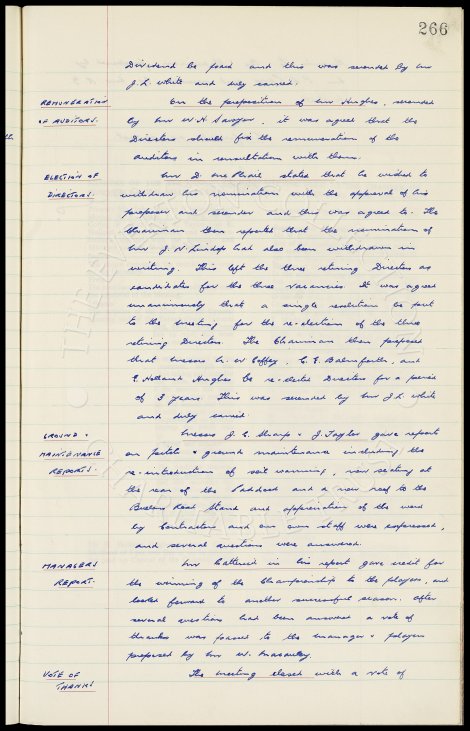 266
Dividend be paid and this was seconded by Mr
J. L. White and duly carried.
REMUNERATION
OF AUDITORS.
On the proposition of Mr Hughes, seconded
by Mr W. H. Sawyer, it was agreed that the
Directors should fix the remuneration of the
Auditors in consultation with them.
ELECTION OF
DIRECTORS.
Mr D. stated that he wished to
withdraw his nomination with the approval of his
proposer and seconder and this was agreed to. The
Chairman then reported that the nomination of
Mr J. N. Lindop had also been withdrawn in
writing. This left the three retiring Directors as
candidates for the three vacancies. It was agreed
unanimously that a single resolution be put
to the meeting for the re-election of the three
retiring Directors. The Chairman then proposed
that Messrs G. W. Coffey, C. E. Balmforth, and
E. Holland Hughes be re-elected Directors for a period
of 3 years. This was seconded by Mr J. L. White
and duly carried
GROUND &
MAINTENANCE
REPORTS.
Messrs J. C. Sharp & J. Taylor gave reports
on pitch & ground maintenance including the
re-introduction of soil warming, new seating at
the rear of the Paddock and a new roof to the
Bullens Road Stand and appreciation of the work
by Contractors and our own staff were expressed,
and several questions were answered.
MANAGERS
REPORT.
Mr Catterick in his report gave credit for
the winning of the Championship to the players, and
looked forward to another successful season. After
several questions had been answered a vote of
thanks was passed to the manager & players
proposed by Mr W. Macauley.
VOTE OF
THANKS
The meeting closed with a vote of